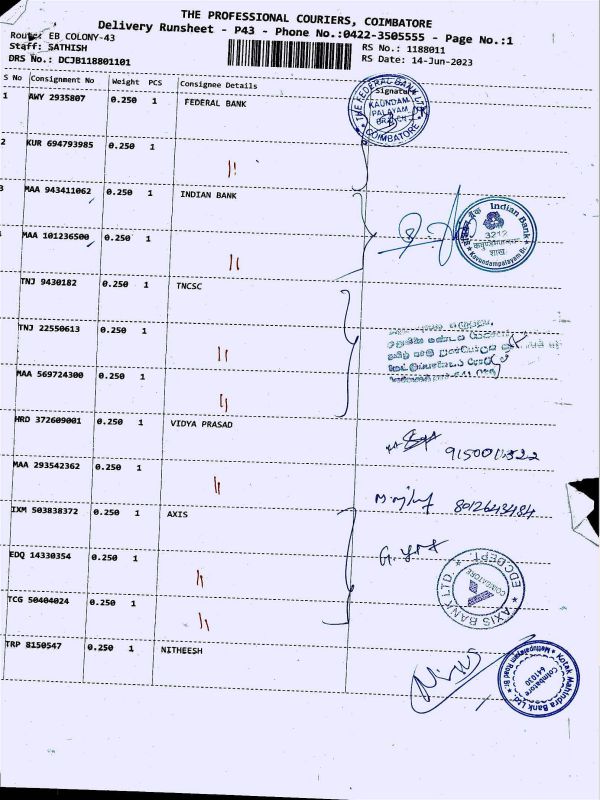 THE PROFESSIONAL COURIERS, COIMBATORE
Delivery Runsheet - P43 - Phone No.:0422-3505555 - Page No.:1
Route: EB COLONY-43
Staff: SATHISH
DRS No.: DCJB118801101
RS No.: 1188011
RS Date: 14-Jun-2023
S No Consignment No Weight PCS Consignee Details Signatu
1 AWY 2935807 0.250 1 FEDERAL BANK
THE FEDERAL BANK LTD
KAUNDAM
PALAYAM
BRANCH
COIMBATORE
2 KUR 694793985 0.250 1
"
3 MAA 943411062 0.250 1 INDIAN BANK
Indian Bank
3212
Kavundampalayam Br
MAA 101236500 0.250 1
"
TNJ 9430182 0.250 1 TNCSC
TNJ 22550613 0.250 1
"
MAA 569724300 0.250 1
"
HRD 372609001 0.250 1 VIDYA PRASAD
MAA 293542362 0.250 1
"
8012643484
IXM 503838372 0.250 1 AXIS
EDQ 14330354 0.250 1
"
AXIS BANK LTD.
EDC.DEPT
COIMBATORE
TCG 50404024 0.250 1
"
TRP 8150547 0.250 1 NITHEESH
Kotak Mahindra Bank Ltd
Mettupalayam Road Br
Coimbatore
641030